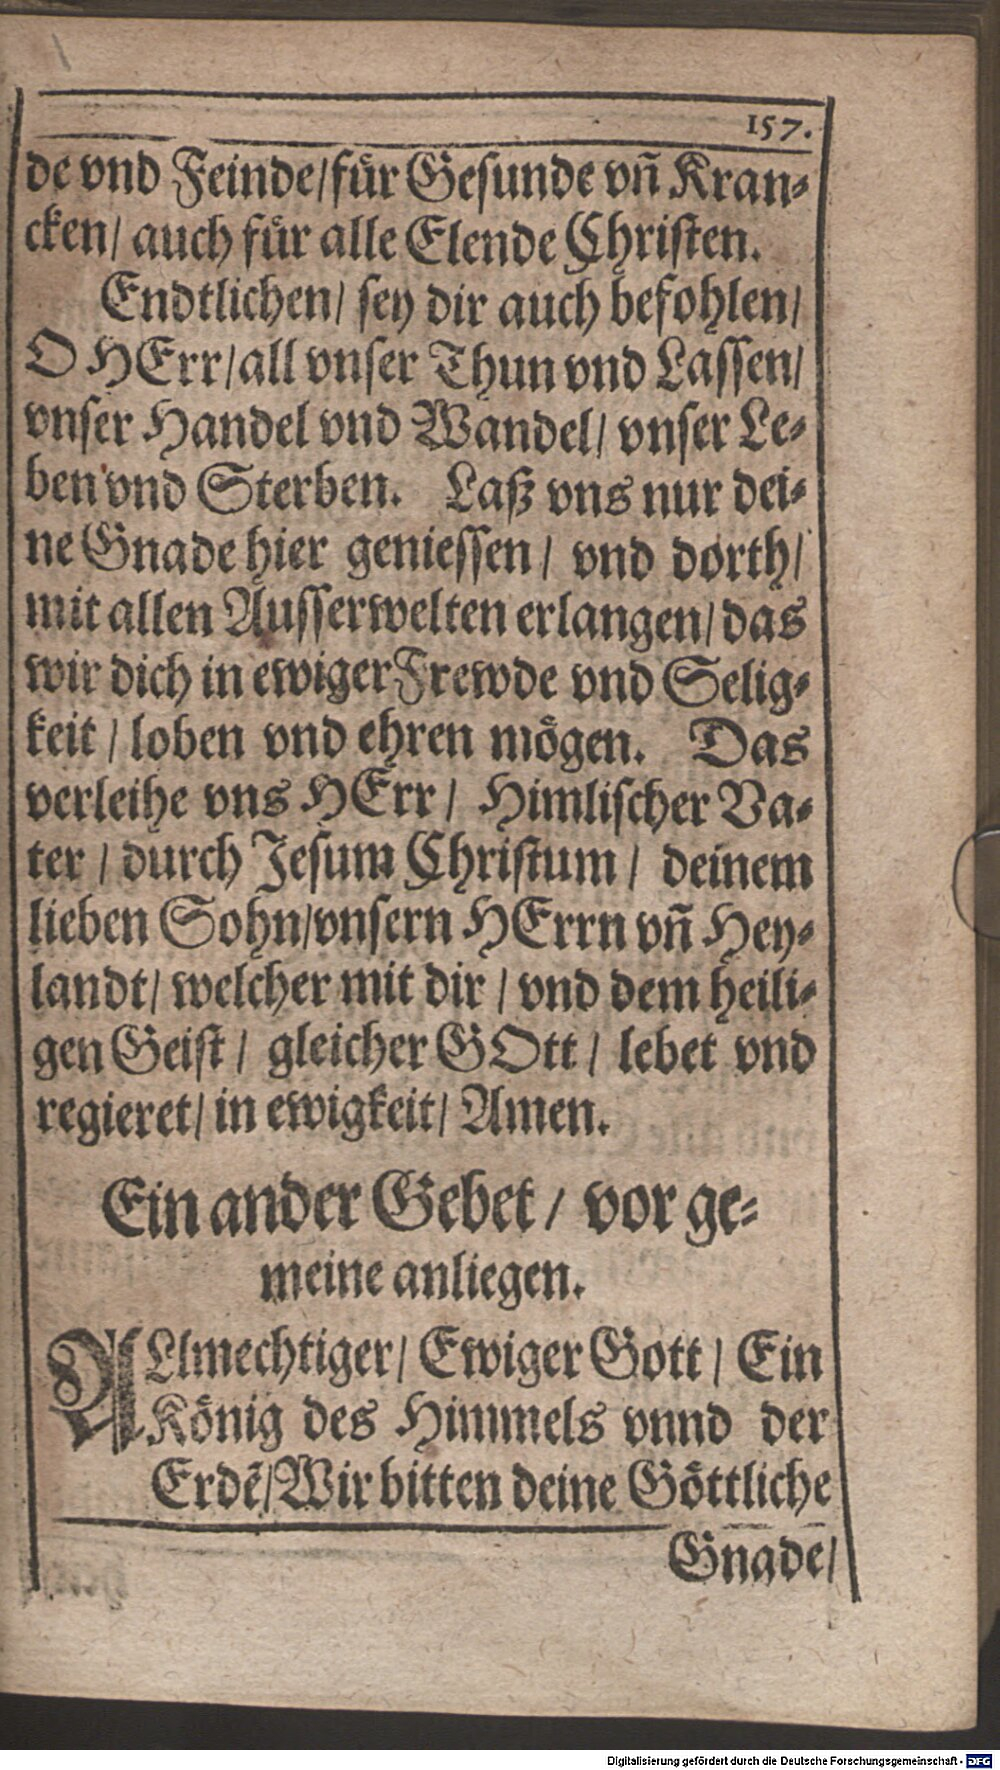 157.
de vnd Feinde/fuͤr Gesunde vn̄ Kran-
cken/ auch fuͤr alle Elende Christen.
Endtlichen/ sey dir auch befohlen/
O HErr/all vnser Thun vnd Lassen/
vnser Handel vnd Wandel/ vnser Le-
ben vnd Sterben. Laß vns nur dei-
ne Gnade hier geniessen/ vnd dorth/
mit allen Ausserwelten erlangen/das
wir dich in ewiger Frewde vnd Selig-
keit/ loben vnd ehren moͤgen. Das
verleihe vns HErr/ Himlischer Va-
ter/ durch Jesum Christum/ deinem
lieben Sohn/vnsern HErrn vn̄ Hey-
landt/ welcher mit dir/ vnd dem heili-
gen Geist/ gleicher GOtt/ lebet vnd
regieret/ in ewigkeit/ Amen.
Ein ander Gebet/ vor ge-
meine anliegen.
ALlmechtiger/ Ewiger Gott/ Ein
Koͤnig des Himmels vnnd der
Erdē/Wir bitten deine Goͤttliche
Gnade/
Digitalisierung gefördert durch die Deutsche Forschungsgemeinschaft - DFG